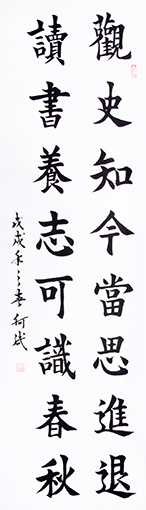 觀史知今當思進退
讀書養志可識春秋
戊戌年之春柯斌